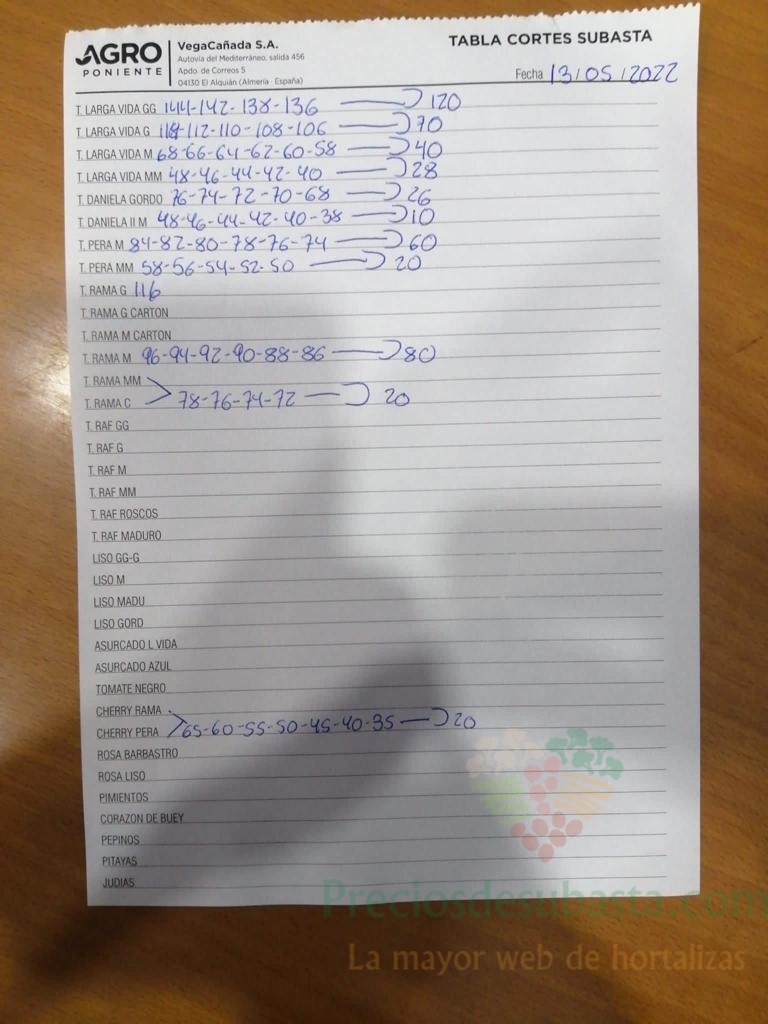 AGRO PONIENTE
VegaCañada S.A.
Autovía del Mediterráneo, salida 456
Apdo. de Correos 5
04130 El Alquián (Almería - España)
TABLA CORTES SUBASTA
Fecha 13/05/2022
T. LARGA VIDA GG 144-142-138-136 120
T. LARGA VIDA G 114-112-110-108-106 70
T. LARGA VIDA M 68-66-64-62-60-58 40
T. LARGA VIDA MM 48-46-44-42-40 28
T. DANIELA GORDO 76-74-72-70-68 26
T. DANIELA II M 48-46-44-42-40-38 10
T. PERA M 84-82-80-78-76-74 60
T. PERA MM 58-56-54-52-50 20
T. RAMA G 116
T. RAMA G CARTON
T. RAMA M CARTON
T. RAMA M 96-94-92-90-88-86 80
T. RAMA MM
T. RAMA C 78-76-74-72 20
T. RAF GG
T. RAF G
T. RAF M
T. RAF MM
T. RAF ROSCOS
T. RAF MADURO
LISO GG-G
LISO M
LISO MADU
LISO GORD
ASURCADO L VIDA
ASURCADO AZUL
TOMATE NEGRO
CHERRY RAMA
CHERRY PERA 65-60-55-50-45-40-35 20
ROSA BARBASTRO
ROSA LISO
PIMIENTOS
CORAZON DE BUEY
PEPINOS
PITAYAS
JUDIAS
Preciosdesubasta.com
La mayor web de hortalizas